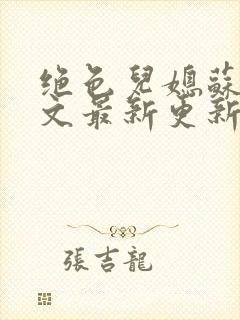 绝色兒媳蘇
文最新更新
張吉龍